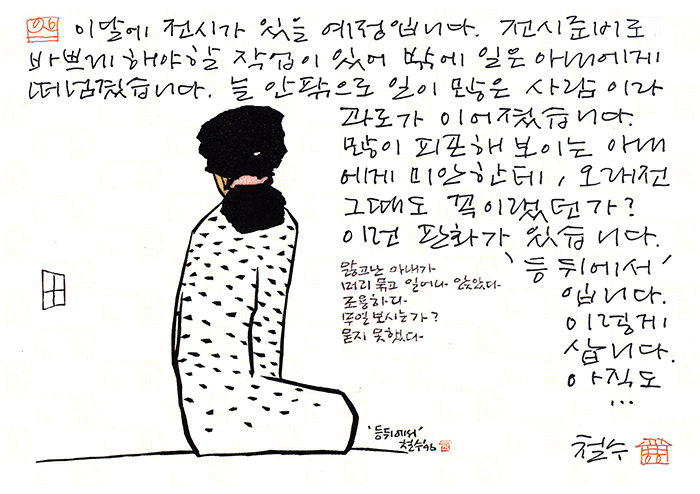 이달에 전시가 있을 예정입니다. 전시준비로
바쁘게 해야할 작업이 있어 밖에 일은 아내에게
떠넘겼습니다. 늘 안팎으로 일이 많은 사람이라
과로가 이어졌습니다.
많이 피곤해 보이는 아내
에게 미안한데, 오래전
그때도 꼭 이랬던가?
이런 판화가 있습니다.
'등뒤에서'
입니다.
이렇게
삽니다.
아직도
...
앓고난 아내가
머리 묶고 일어나 앉았다
조용하다
무얼 보시는가?
묻지 못했다
'등뒤에서'
철수 '96
철수